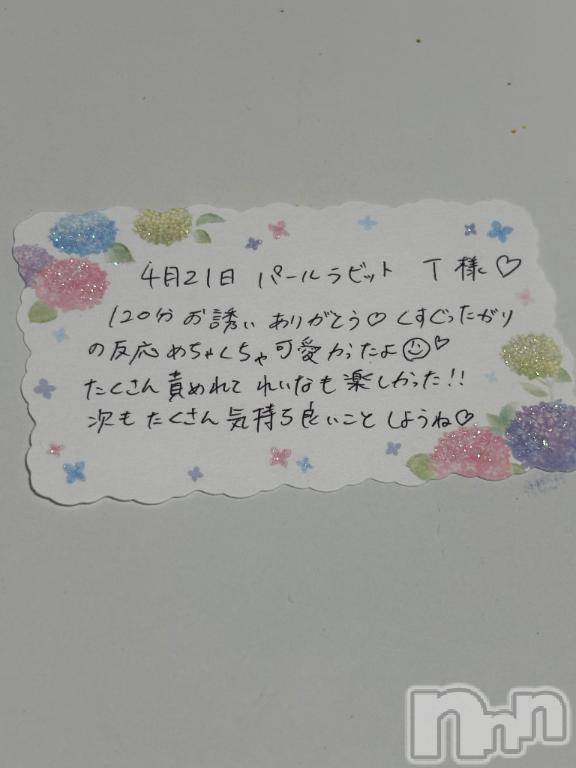 4月21日 パールラビット T様♡
120分お誘いありがとう♡くすぐったがり
の反応めちゃくちゃ可愛かったよ☺♡
たくさん責めれてれいなも楽しかった!!
次もたくさん気持ち良いことしようね♡
nnn